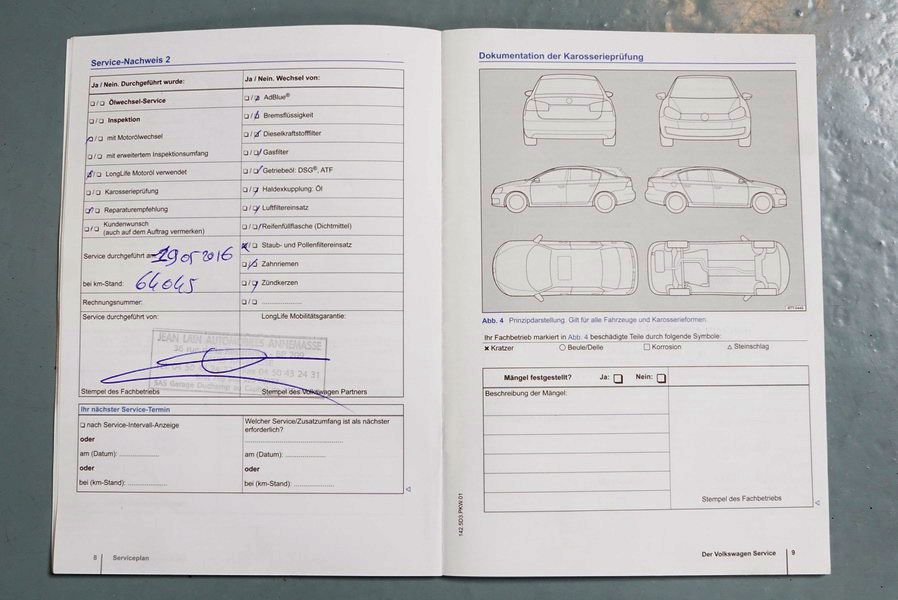 Service-Nachweis 2
Ja / Nein. Durchgeführt wurde:
❏/❏ Ölwechsel-Service
❏/❏ Inspektion
❏/❏ mit Motorölwechsel
❏/❏ mit erweitertem Inspektionsumfang
❏/❏ LongLife Motoröl verwendet
❏/❏ Karosserieprüfung
❏/❏ Reparaturempfehlung
❏/❏ Kundenwunsch
(auch auf dem Auftrag vermerken)
Service durchgeführt am 19 05 2016
bei km-Stand: 64045
Rechnungsnummer:
Ja / Nein. Wechsel von:
❏/❏ AdBlue®
❏/❏ Bremsflüssigkeit
❏/❏ Dieselkraftstofffilter
❏/❏ Gasfilter
❏/❏ Getriebeöl: DSG®, ATF
❏/❏ Haldexkupplung: Öl
❏/❏ Luftfiltereinsatz
❏/❏ Reifenfüllflasche (Dichtmittel)
❏/❏ Staub- und Pollenfiltereinsatz
❏/❏ Zahnriemen
❏/❏ Zündkerzen
❏/❏ ....................
Service durchgeführt von:
LongLife Mobilitätsgarantie:
JEAN LAIN AUTOMOBILES ANNEMASSE
04 50 43 24 31
Stempel des Fachbetriebs
Stempel des Volkswagen Partners
Ihr nächster Service-Termin
❏ nach Service-Intervall-Anzeige
oder
am (Datum): ....................
oder
bei (km-Stand): ....................
Welcher Service/Zusatzumfang ist als nächster
erforderlich?
am (Datum): ....................
oder
bei (km-Stand): ....................
8 Serviceplan
Dokumentation der Karosserieprüfung
Abb. 4 Prinzipdarstellung. Gilt für alle Fahrzeuge und Karosserieformen.
Ihr Fachbetrieb markiert in Abb. 4 beschädigte Teile durch folgende Symbole:
✖ Kratzer ○ Beule/Delle □ Korrosion △ Steinschlag
Mängel festgestellt? Ja: ❏ Nein: ❏
Beschreibung der Mängel:
Stempel des Fachbetriebs
142.5D3.PKW.01
Der Volkswagen Service 9